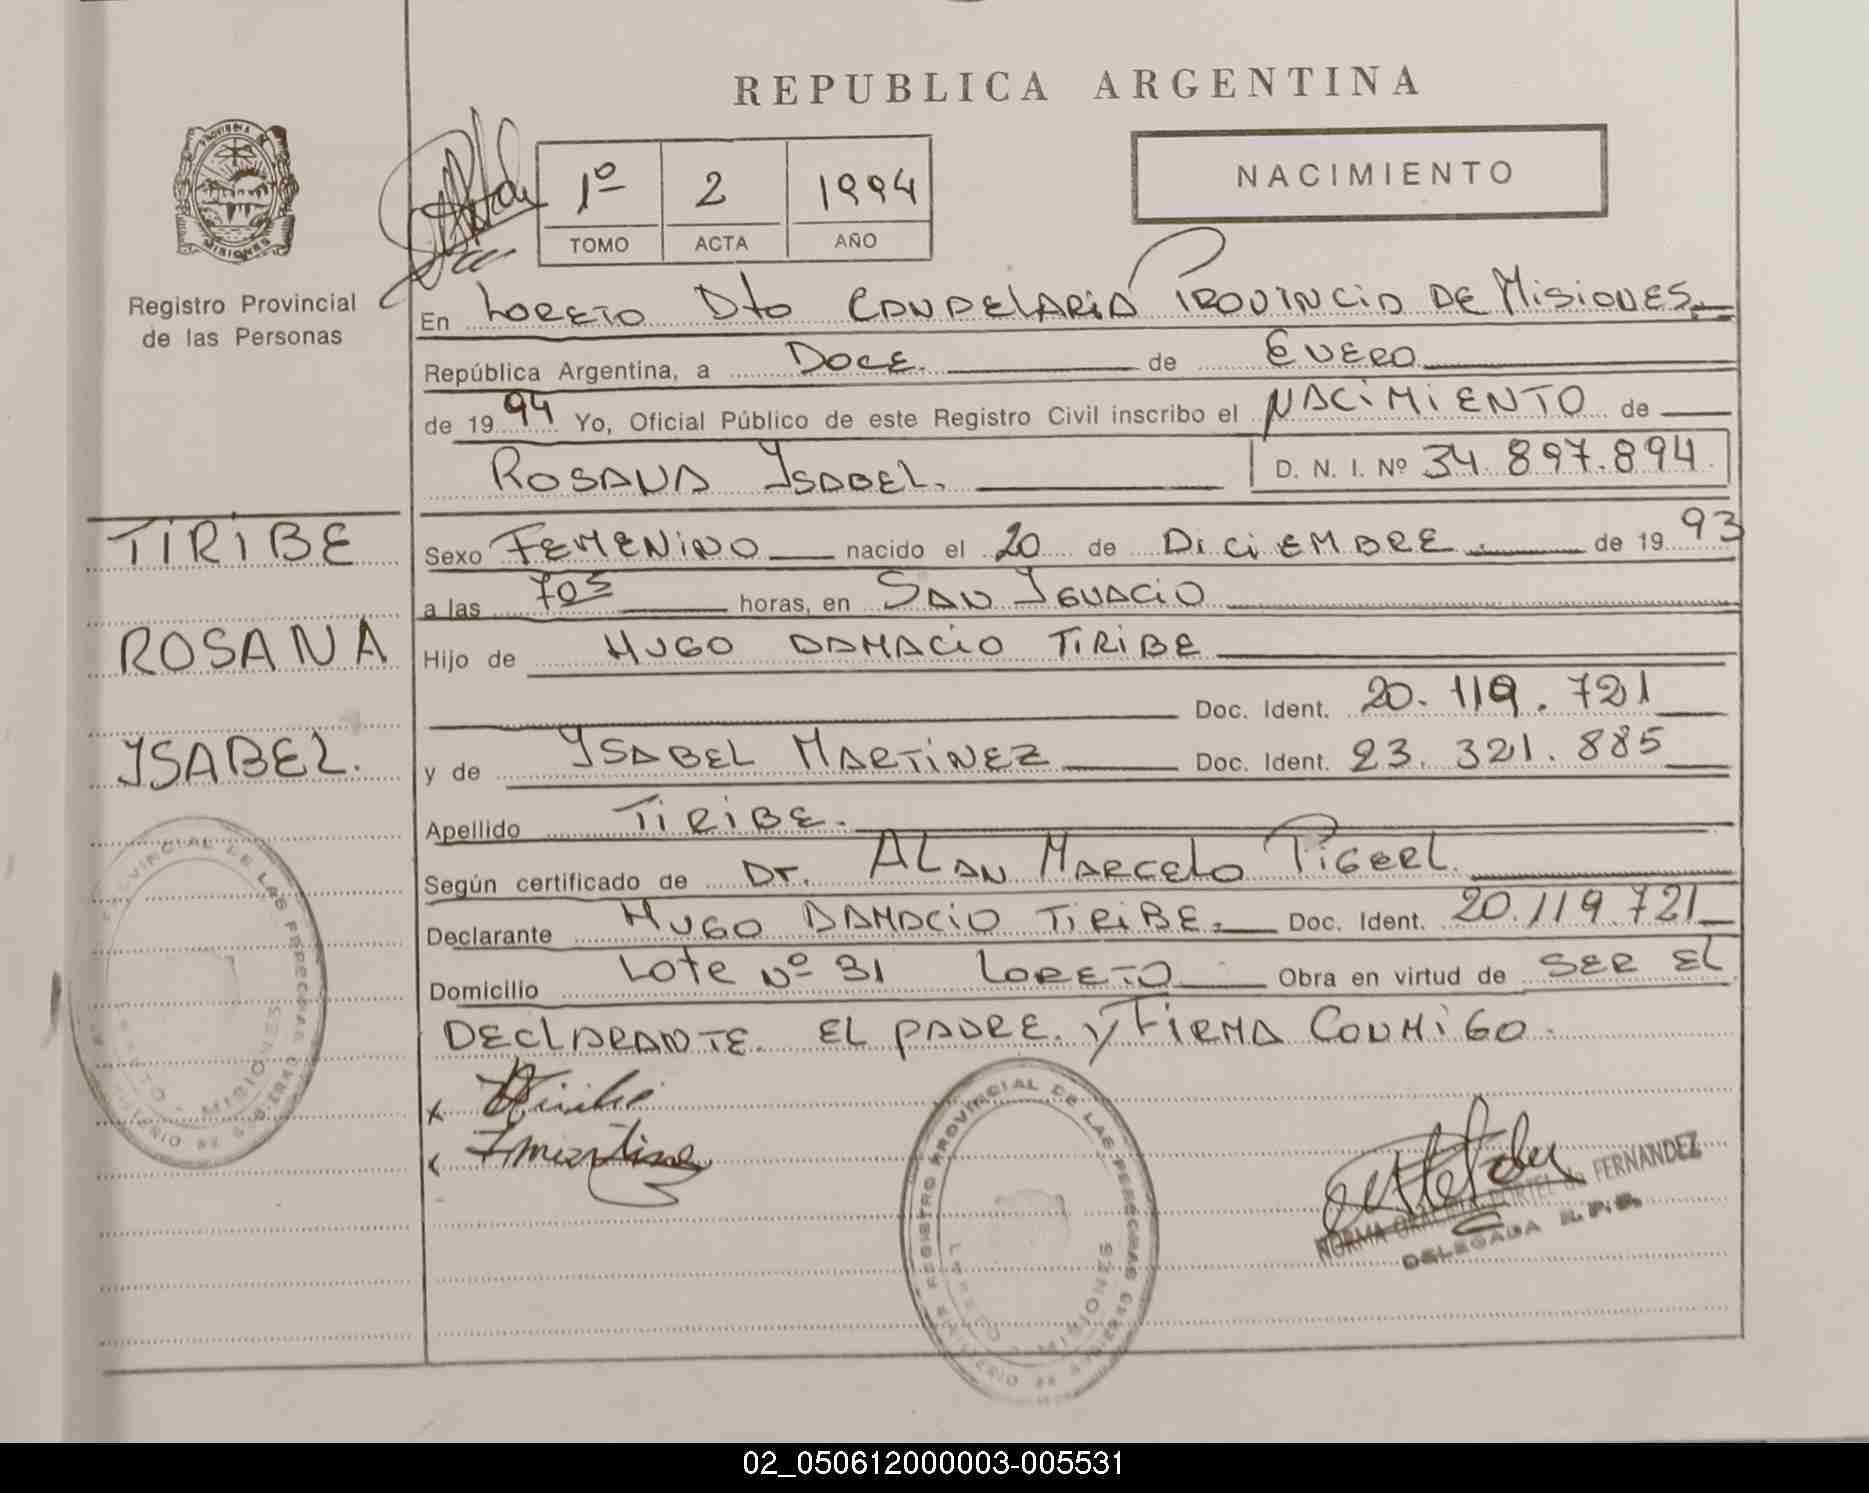 REPUBLICA ARGENTINA
PROVINCIA DE
MISIONES
Registro Provincial
de las Personas
1º 2 1994
TOMO ACTA AÑO
NACIMIENTO
En LORETO Dto CANDELARIA PROVINCIA DE MISIONES.
República Argentina, a DOCE. de ENERO
de 1994 Yo, Oficial Público de este Registro Civil inscribo el NACIMIENTO de
ROSANA YSABEL. D. N. I. Nº 34.897.894
TIRIBE
ROSANA
YSABEL.
Sexo FEMENINO nacido el 20 de DICIEMBRE. de 1993
a las 705 horas, en SAN IGNACIO
Hijo de HUGO DAMACIO TIRIBE
Doc. Ident. 20.119.721
y de YSABEL MARTÍNEZ Doc. Ident. 23.321.885
Apellido TIRIBE.
Según certificado de Dr. ALAN MARCELO PIGERL.
Declarante HUGO DAMACIO TIRIBE. Doc. Ident. 20.119.721
Domicilio Lote Nº 31 LORETO Obra en virtud de SER EL
DECLARANTE. EL PADRE. Y FIRMA CONMIGO.
REGISTRO PROVINCIAL DE LAS PERSONAS
LORETO - MISIONES
NORMA GRACIELA PORTEL de FERNANDEZ
DELEGADA R.P.P.
02_050612000003-005531